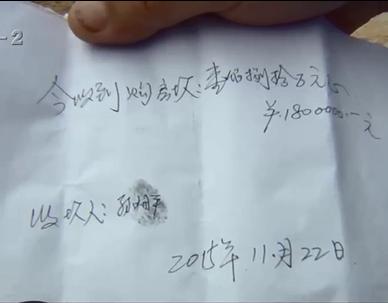 -2
今收到购房款:壹佰捌拾万元
¥:1800000.一元
收款人:
2015年.11.月22日